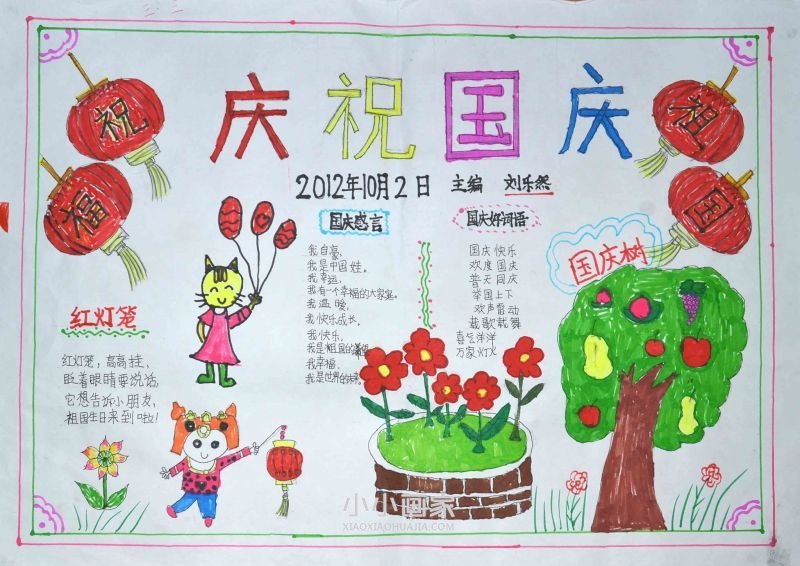 庆祝国庆
2012年10月2日 主编 刘乐然
祝
福
祖
国
国庆感言
我自豪,
我是中国娃。
我幸运,
我有一个幸福的大家庭。
我温暖,
我快乐成长。
我快乐,
我是祖国的希望
我幸福,
我是世界的未来。
国庆好词语
国庆快乐
欢度国庆
普天同庆
举国上下
欢声雷动
载歌载舞
喜气洋洋
万家灯火
国庆树
红灯笼
红灯笼,高高挂,
眨着眼睛要说话,
它想告诉小朋友,
祖国生日来到啦!
小小画家
XIAOXIAOHUAJIA.COM